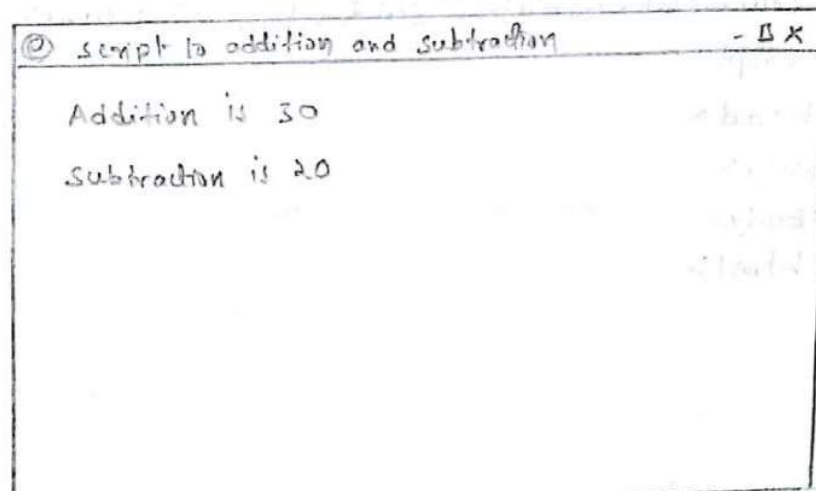 script to addition and subtraction - X
Addition is 30
Subtraction is 20